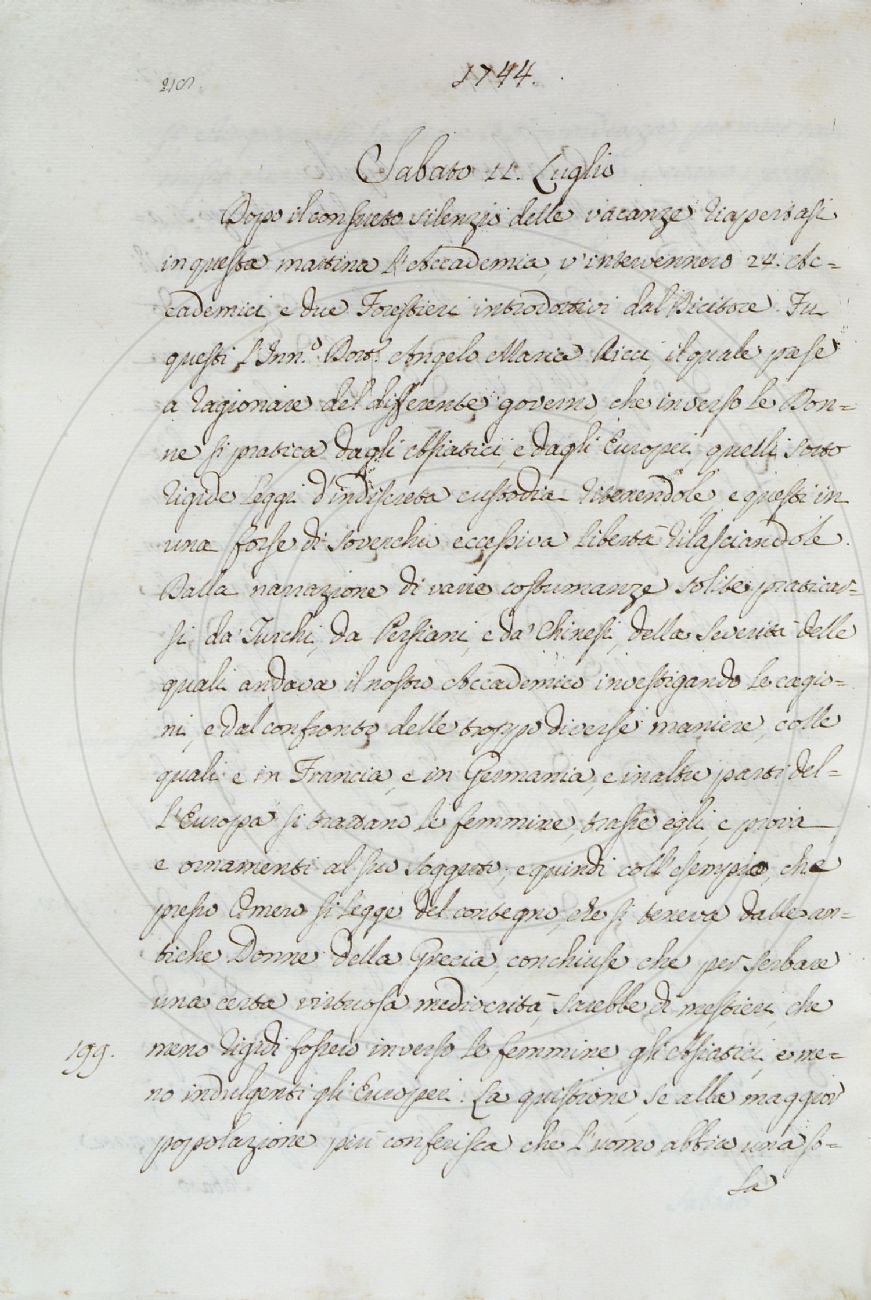 218.
1744.
Sabato 11. Luglio
Dopo il consueto silenzio delle vacanze riapertasi
in questa mattina l'Accademia, v'intervennero 24. Ac=
cademici, e due Forestieri introdottivi dal Dicitore. Fu
questi l'Inn.º Dott.r Angelo Maria Ricci, il quale prese
a ragionare del differente governo, che inverso le Don=
ne si pratica dagli Asiatici, e dagli Europei, quelli sotto
rigide leggi d'indiscreta custodia ritenendole, e questi in
una forse di soverchio eccessiva libertà rilasciandole.
Dalla narrazione di varie costumanze solite praticar=
si, da' Turchi, da Persiani, e da' Chinesi, della severità delle
quali andava il nostro Accademico investigando le cagio=
ni, e dal confronto delle troppo diverse maniere, colle
quali e in Francia, e in Germania, e in altre parti del=
l'Europa si trattano le femmine, trasse egli, e prova
e ornamenti al suo soggetto; e quindi coll'esempio, che
presso Omero si legge del contegno, che si teneva dalle an=
tiche Donne della Grecia, conchiuse che per serbare
una certa virtuosa mediocrità, sarebbe di mestieri, che
199.
meno rigidi fossero inverso le femmine gli Asiatici, e me=
no indulgenti gli Europei. La quistione, se alla maggior
popolazione più conferisca che l'uomo abbia una so=
la